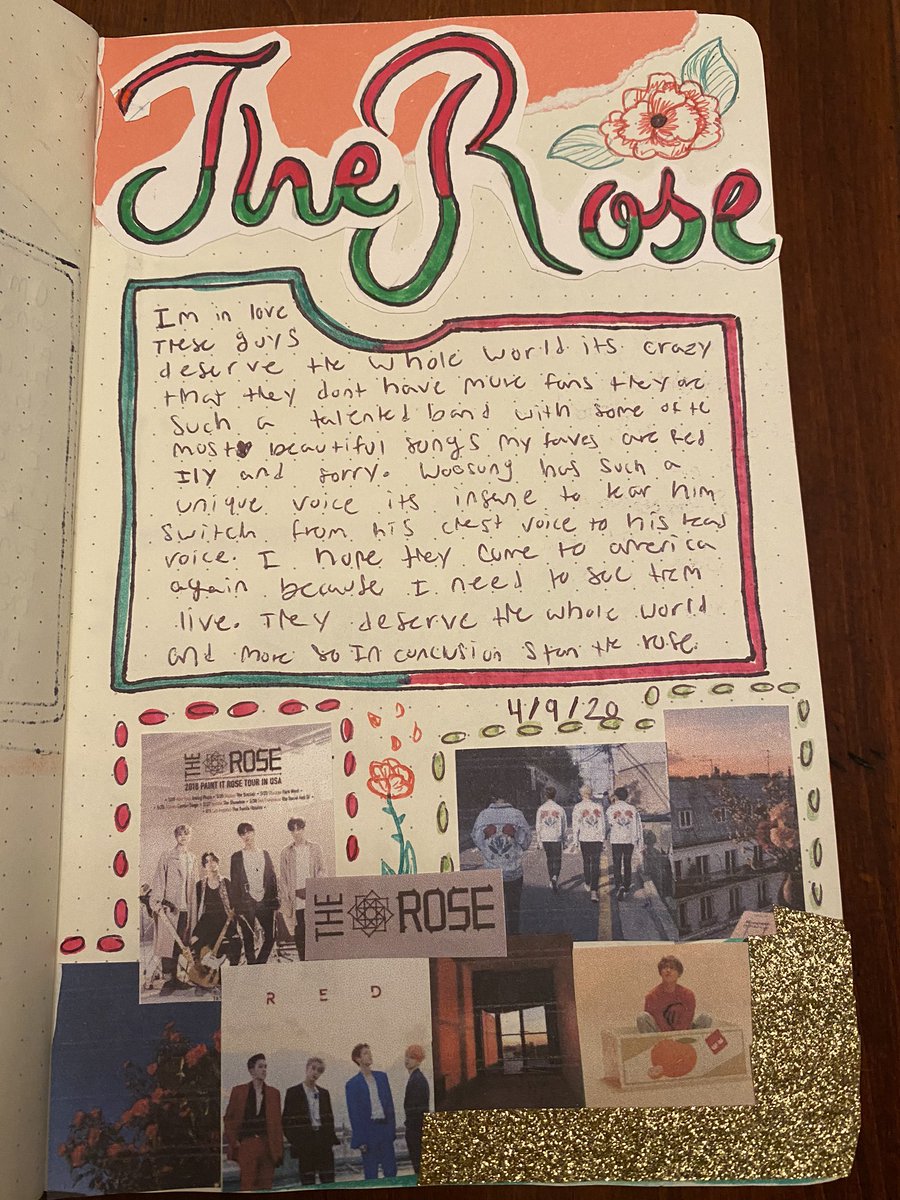 The Rose
Im in love
These guys
deserve the whole world its crazy
that they dont have more fans they are
such a talented band with some of the
most beautiful songs my faves are Red
Ily and sorry. Woosung has such a
unique voice its insane to hear him
switch from his chest voice to his head
voice. I hope they come to america
again because I need to see them
live. They deserve the whole world
and more so In conclusion stan the rose.
4/9/20
THE ROSE
2018 PAINT IT ROSE TOUR IN USA
THE ROSE
RED